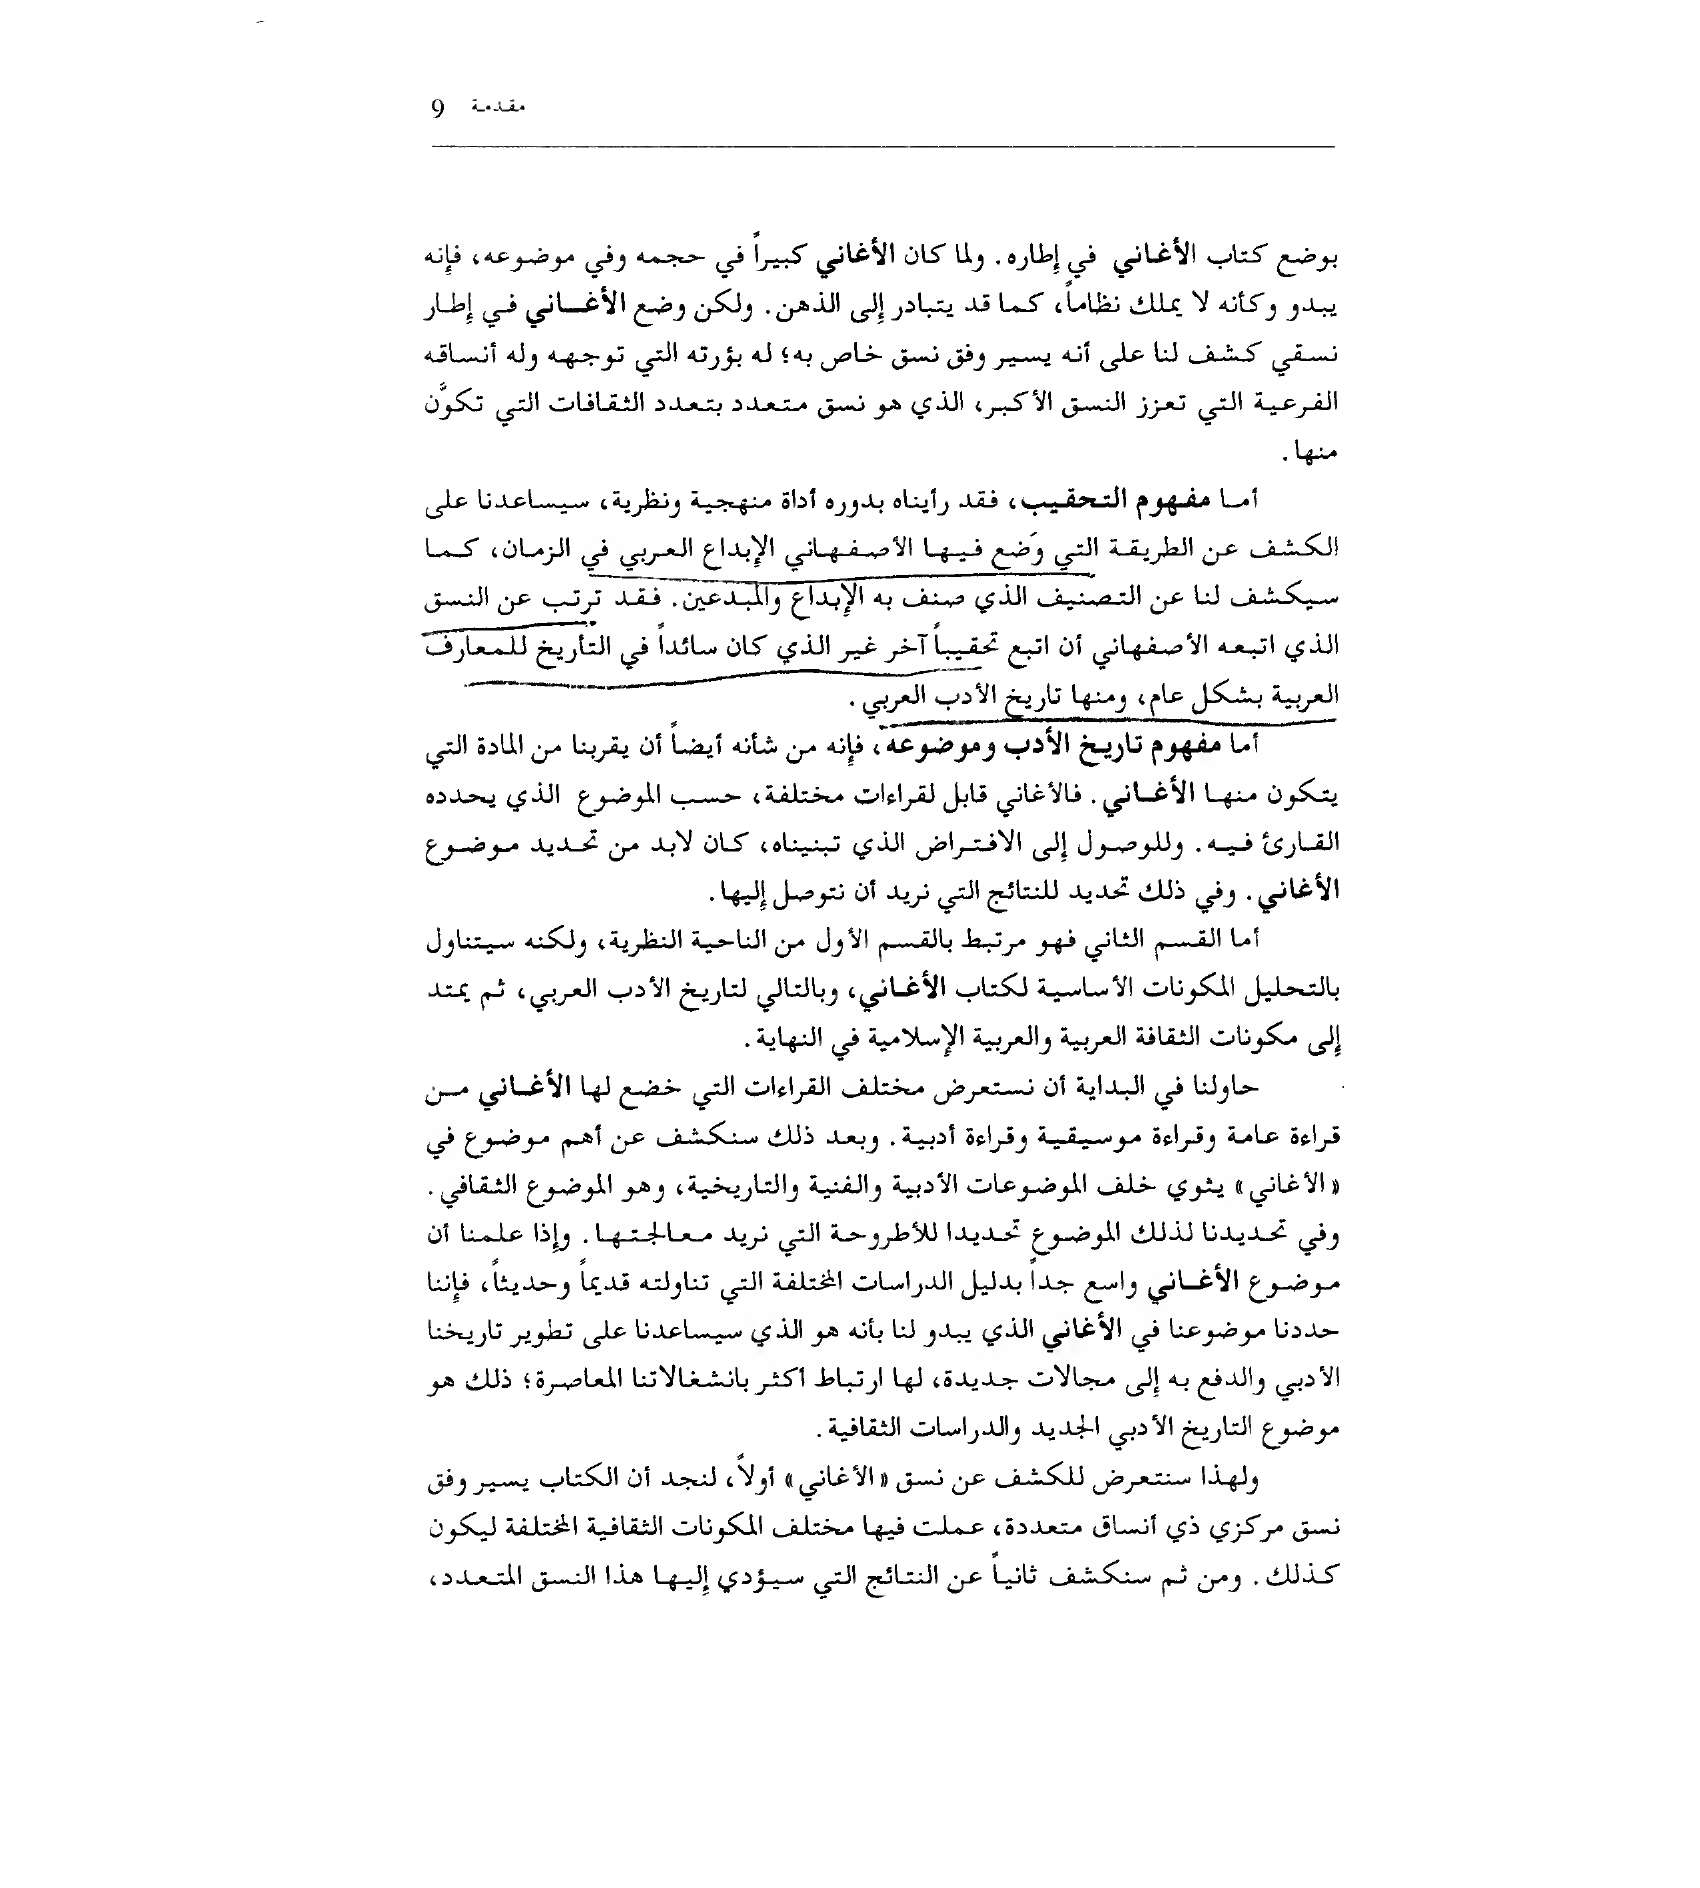 مقدمة 9
بوضع كتاب الأغاني في إطاره. ولما كان الأغاني كبيراً في حجمه وفي موضوعه، فإنه
يبدو وكأنه لا يملك نظاماً، كما قد يتبادر إلى الذهن. ولكن وضع الأغاني في إطار
نسقي كشف لنا على أنه يسير وفق نسق خاص به؛ له بؤرته التي توجهه وله أنساقه
الفرعية التي تعزز النسق الأكبر، الذي هو نسق متعدد بتعدد الثقافات التي تكوَّن
منها.
أما مفهوم التحقيب، فقد رأيناه بدوره أداة منهجية ونظرية، سيساعدنا على
الكشف عن الطريقة التي وَضع فيها الأصفهاني الإبداع العربي في الزمان، كما
سيكشف لنا عن التصنيف الذي صنف به الإبداع والمبدعين. فقد ترتب عن النسق
الذي اتبعه الأصفهاني أن اتبع تحقيباً آخر غير الذي كان سائداً في التأريخ للمعارف
العربية بشكل عام، ومنها تاريخ الأدب العربي.
أما مفهوم تاريخ الأدب وموضوعه، فإنه من شأنه أيضاً أن يقربنا من المادة التي
يتكون منها الأغاني. فالأغاني قابل لقراءات مختلفة، حسب الموضوع الذي يحدده
القارئ فيه. وللوصول إلى الافتراض الذي تبنيناه، كان لابد من تحديد موضوع
الأغاني. وفي ذلك تحديد للنتائج التي نريد أن نتوصل إليها.
أما القسم الثاني فهو مرتبط بالقسم الأول من الناحية النظرية، ولكنه سيتناول
بالتحليل المكونات الأساسية لكتاب الأغاني، وبالتالي لتاريخ الأدب العربي، ثم يمتد
إلى مكونات الثقافة العربية والعربية الإسلامية في النهاية.
حاولنا في البداية أن نستعرض مختلف القراءات التي خضع لها الأغاني من
قراءة عامة وقراءة موسيقية وقراءة أدبية. وبعد ذلك سنكشف عن أهم موضوع في
«الأغاني» يثوي خلف الموضوعات الأدبية والفنية والتاريخية، وهو الموضوع الثقافي.
وفي تحديدنا لذلك الموضوع تحديدا للأطروحة التي نريد معالجتها. وإذا علمنا أن
موضوع الأغاني واسع جداً بدليل الدراسات المختلفة التي تناولته قديماً وحديثاً، فإننا
حددنا موضوعنا في الأغاني الذي يبدو لنا بأنه هو الذي سيساعدنا على تطوير تاريخنا
الأدبي والدفع به إلى مجالات جديدة، لها ارتباط أكثر بانشغالاتنا المعاصرة؛ ذلك هو
موضوع التاريخ الأدبي الجديد والدراسات الثقافية.
ولهذا سنتعرض للكشف عن نسق «الأغاني» أولاً، لنجد أن الكتاب يسير وفق
نسق مركزي ذي أنساق متعددة، عملت فيها مختلف المكونات الثقافية المختلفة ليكون
كذلك. ومن ثم سنكشف ثانياً عن النتائج التي سيؤدي إليها هذا النسق المتعدد،